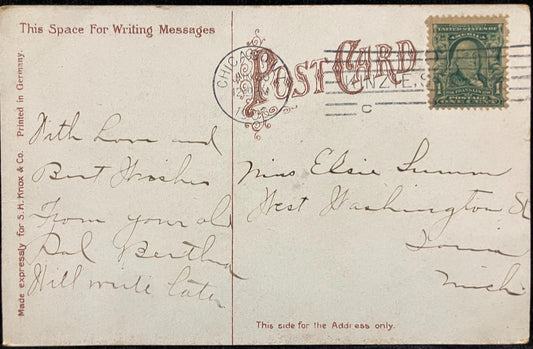 This Space For Writing Messages
POST CARD
CHICAGO
UNITED STATES OF AMERICA
1
Made expressly for S. H. Knox & Co. Printed in Germany.
With Love and
Best Wishes
From your old
Pal Bertha
Will write later
Miss Elsie
West Washington St
Ionia
Mich
This side for the Address only.